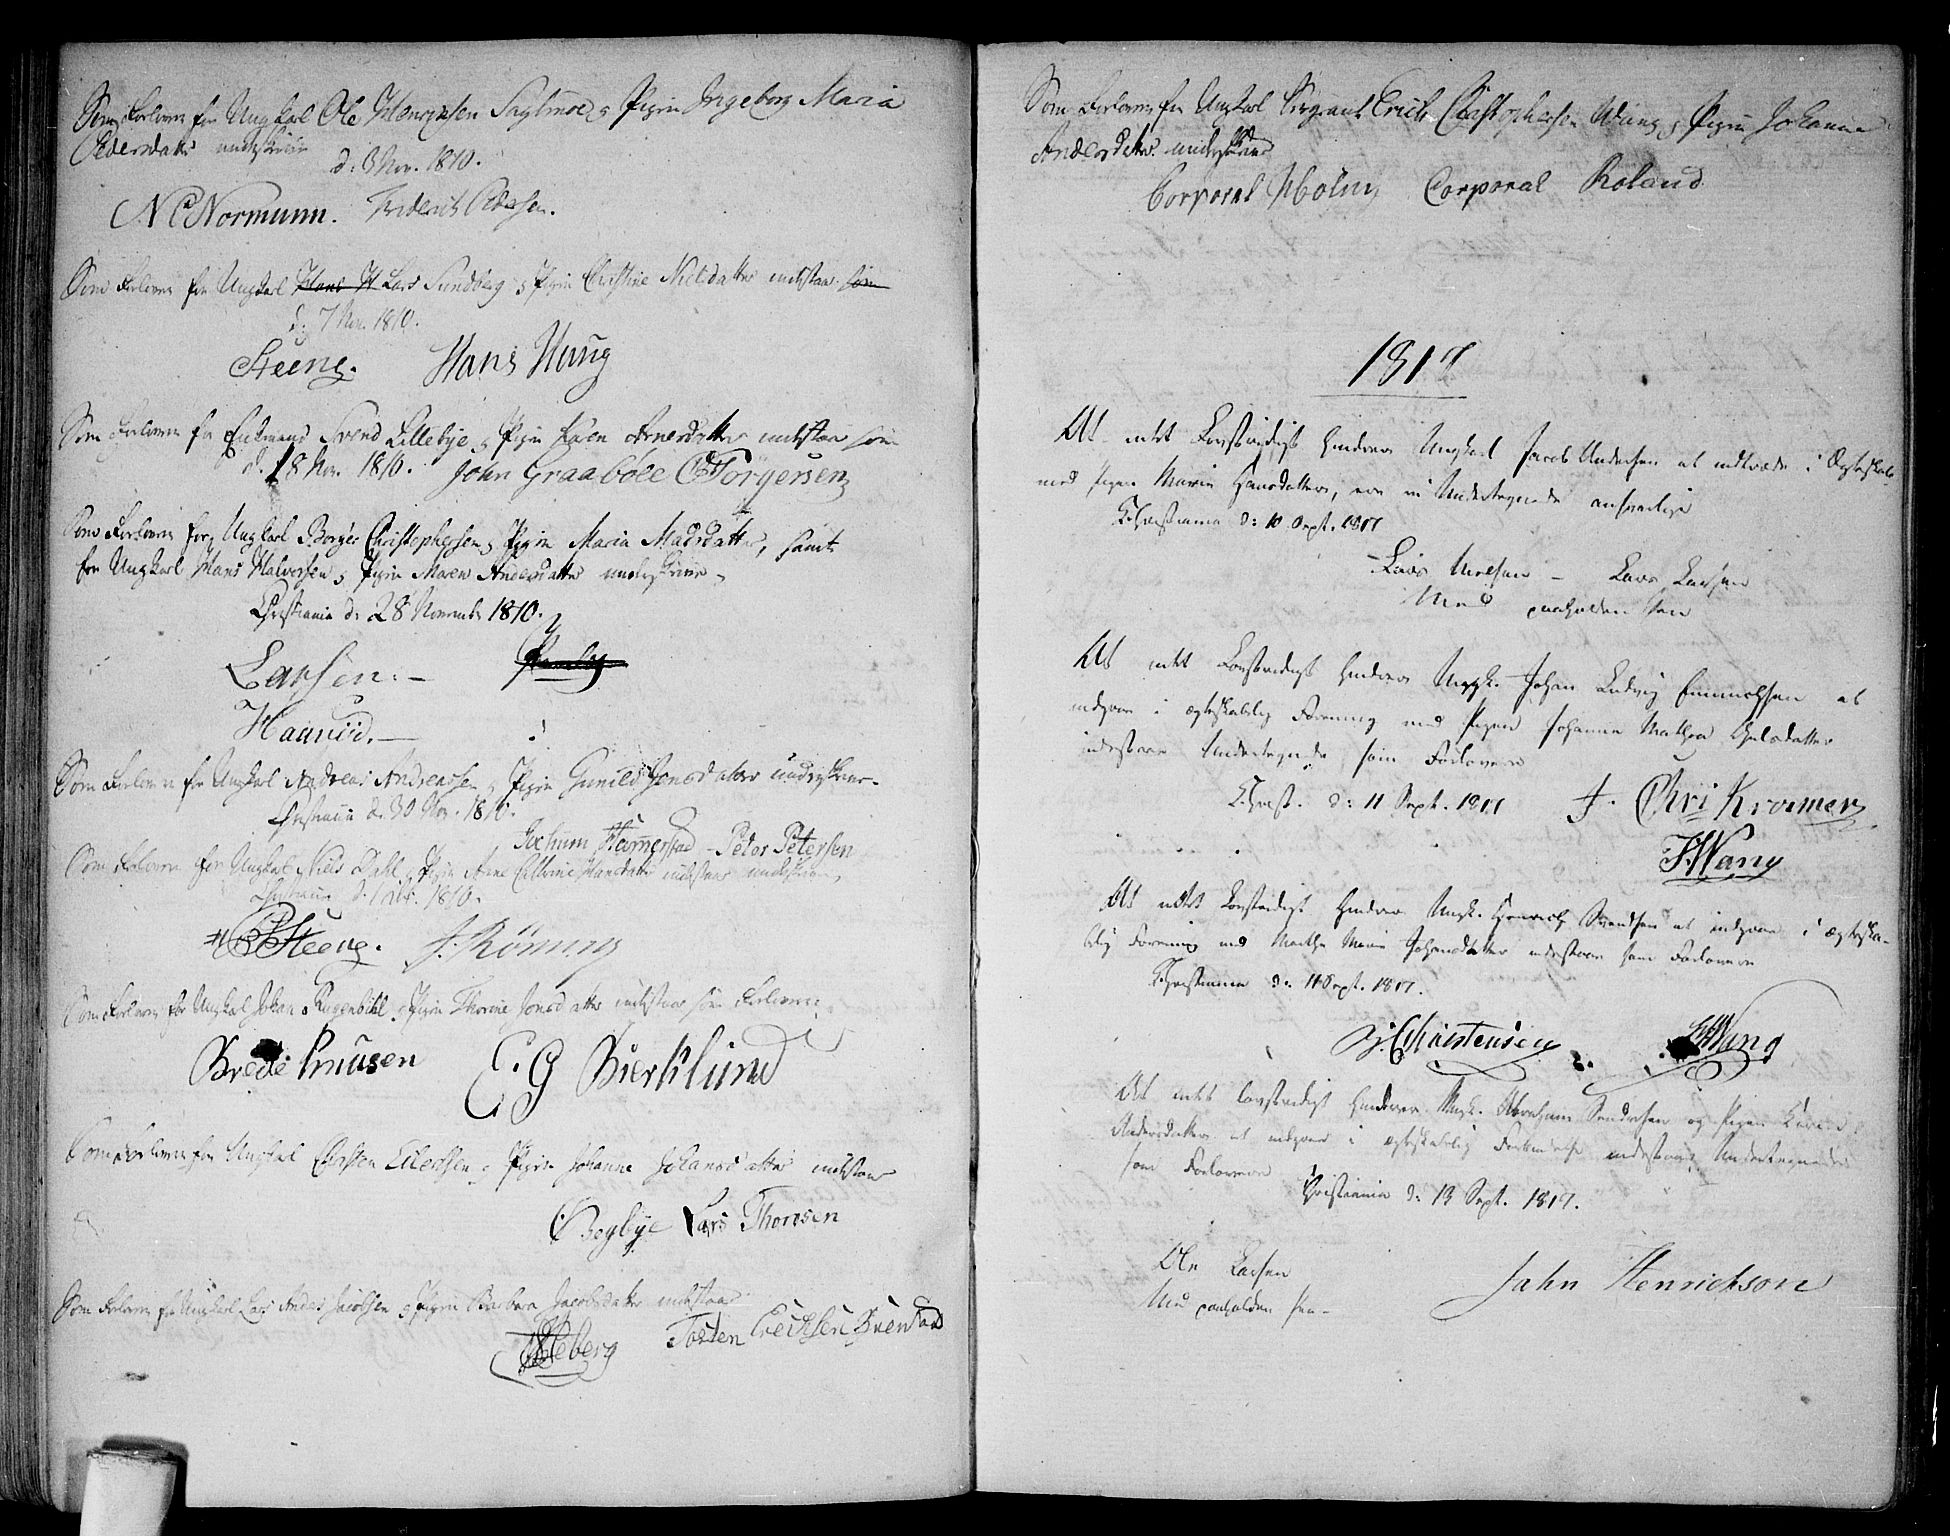 Som Forlovere for Ungkarl Ole Henrichsen Saglmoe og Pigen Ingeborg Maria
Pedersdatter underskrive
d: 3 Nov. 1810.
N C Normunn. Friderich Pedersen.
Som Forlover for Ungkarl Hans H Lars Sundberg og Pigen Christine Nielsdatter indestaar som
d: 7 Nov. 1810.
Steeng. Hans Haug
Som Forlovere for Enkemand Svend Lillebye og Pigen Karen Arnesdatter indestaar som
d. 18 Nov. 1810. John Graaböle C Törgersen
Som Forlovere for Ungkarl Borger Christophersen og Pigen Maria Madsdatter, samt
for Ungkarl Hans Halvorsen og Pigen Maren Andersdatter underskrive
Christiania d: 28 November 1810.
Larsen.
Haaruid.
Som Forlovere for Ungkarl Andreas Andreassen og Pigen Gunild Jonsdatter underskrive
Christiania d. 30 Nov. 1810.
Jochum Hamerstad - Peter Petersen
Som Forlovere for Ungkarl Niels Dahl og Pigen Anne Cathrine Hansdatter indestaar underskrevne
Christiania d. 1 Dec. 1810.
Steeng. J. Röning
Som Forlovere for Ungkarl Johan Rugenbihl og Pigen Thorine Jonsdatter indestaar som Forlovere
Brede Knusen E. G Bierklund
Som Forlovere for Ungkarl Carsten Eilertsen og Pigen Johanne Johansdatter indestaar
Bogbye Lars Thomsen
Som Forlovere for Ungkarl Lars Anders Jacobsen og Pigen Barbara Jacobsdatter indestaar
Torsten Erechsen
Som Forlovere for Ungkarl Sergeant Erich Christophersen og Pigen Johanne
Andersdatter underskrive
Corporal Holm Corporal Roland
1817
At intet Lovstridigt hindrer Ungkarl Jacob Andersen at indtræde i Ægteskab
med Pigen Marie Hansdatter, ere vi Undertegnede ansvarlige
Christiania d: 10 Sept. 1817
Lars Nielsen - Lars Larsen
Med paaholden Pen
At intet Lovstridigt hindrer Ungk. Johan Ludvig Emmichsen at
indgaae i ægteskabelig Forening med Pigen Johanne Mathea Gulsdatter
indestaae Undertegnede som Forlovere
Christ. d: 11 Sept. 1817 J. Chri Krømer
J. Wang
At intet Lovstridigt hindrer Ungk. Henrich Svendsen at indgaae i ægteska-
blig Forening med Marthe Marie Johansdatter indestaae som Forlovere
Christiania d: 11 Sept. 1817.
Christensen Wang
At intet lovstridigt hindrer Ungk. Abraham Sendresen og Pigen Karen
Andersdatter at indgaae i ægteskabelig Forbindelse indestaae Undertegnede
som Forlovere
Christiania d: 13 Sept. 1817.
Ole Larsen John Henrichson
Med paaholden Pen